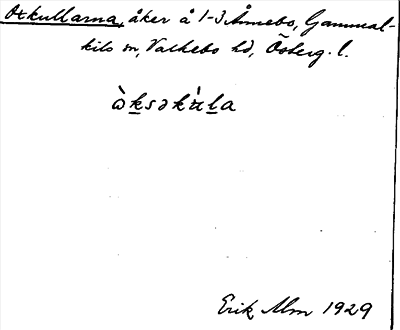 Oxkullarna, åker å 1-3 Åmnebo, Gammal-
kils sn, Valkebo hd, Österg. l.
ὼksəkὺla
Erik Alm 1929